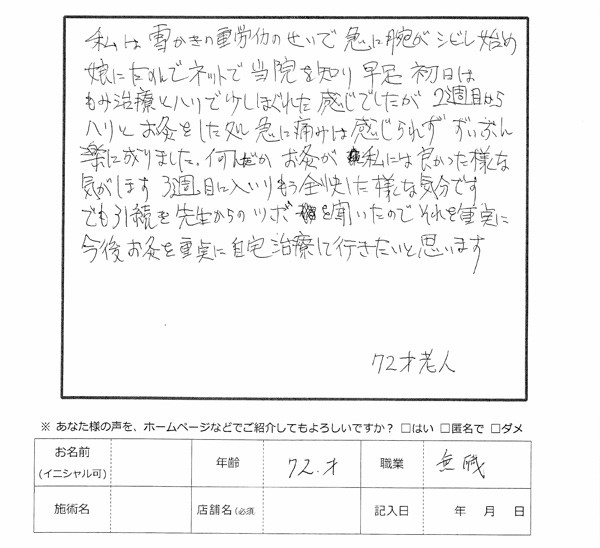 私は雪かきの重労仂のせいで急に腕がシビレ始め
娘にたのんでネットで当院を知り早足初日は
もみ治療とハリで少しほぐれた感じでしたが2週目から
ハリとお灸をした処急に痛みは感じられずずいぶん
楽に成りました。何んだかお灸が私には良かった様な
気がします3週目に入いりもう全快した様な気分です
でも引続き先生からのツボを聞いたのでそれを重点に
今後お灸を重点に自宅治療して行きたいと思います
72才老人
※ あなた様の声を、ホームページなどでご紹介してもよろしいですか? □はい □匿名で □ダメ
お名前 (イニシャル可) 年齢 72.才 職業 無職
施術名 店舗名(必須 記入日 年 月 日